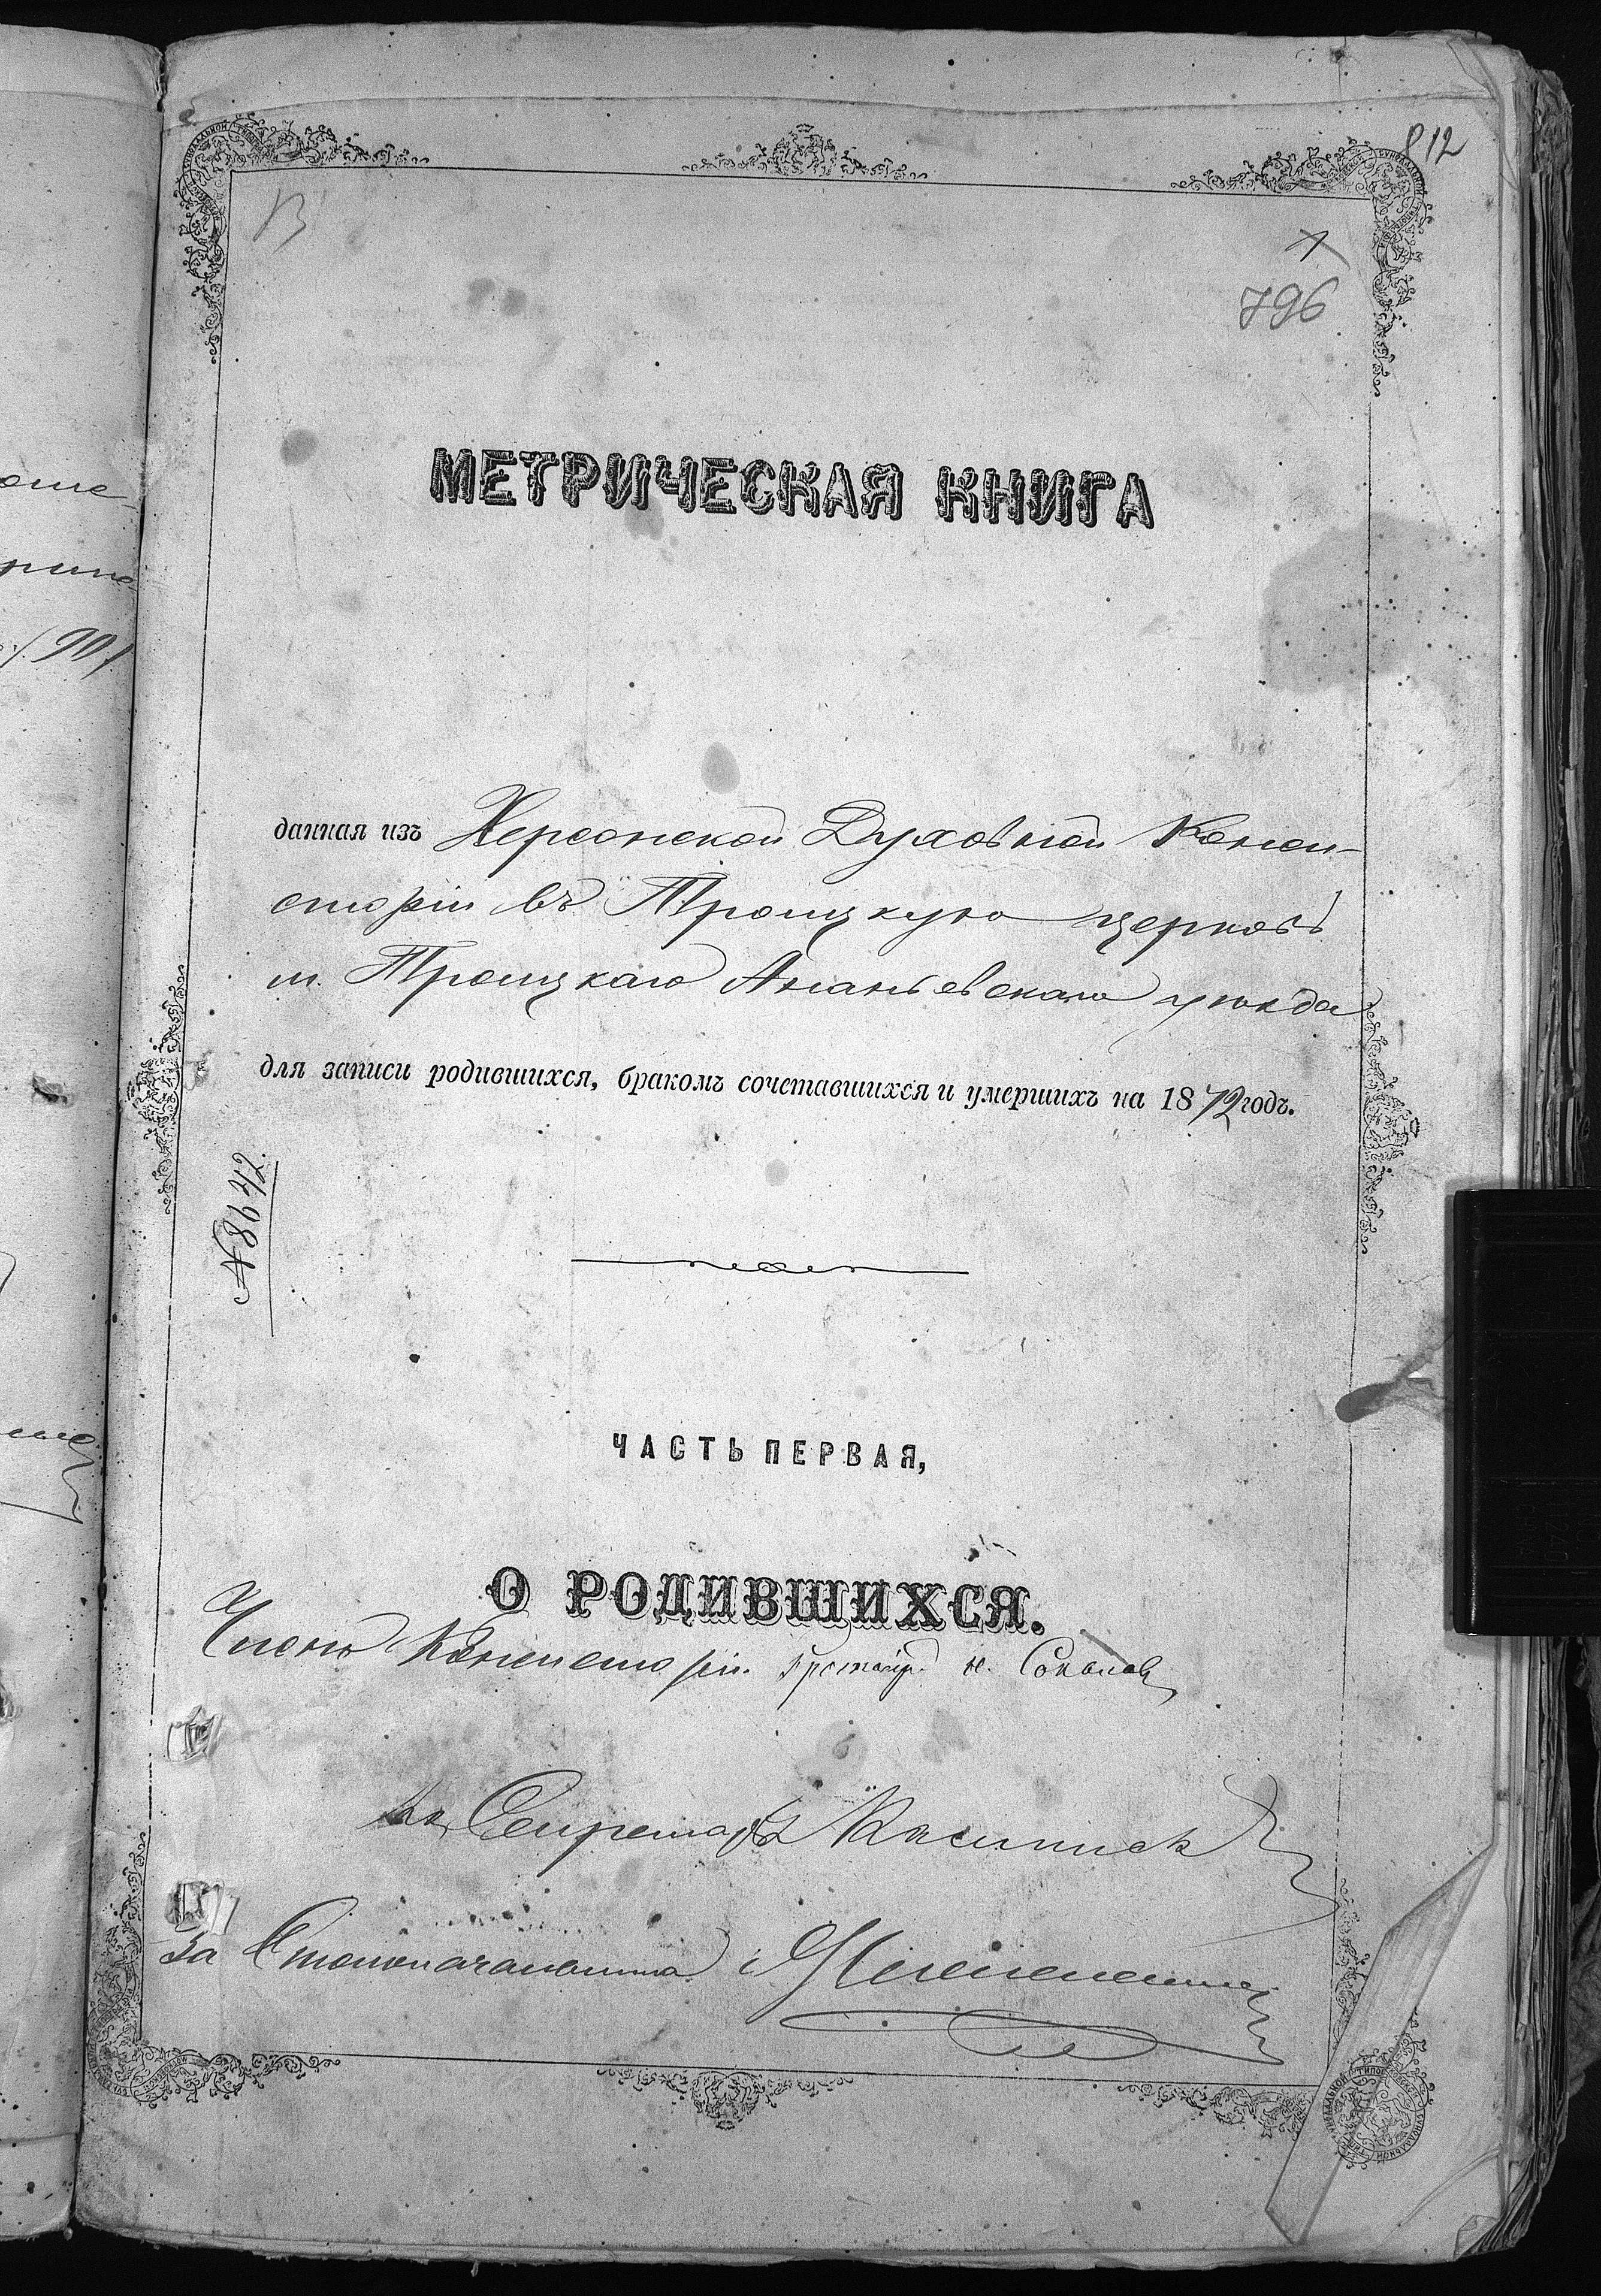 812
796
МЕТРИЧЕСКАЯ КНИГА
данная изъ Херсонской Духовной Конси-
сторіи въ Троицкую церковь
м. Троицкаго Ананьевскаго уѣзда
для записи родившихся, бракомъ сочетавшихся и умершихъ на 1872 годъ.
№ 8642.
ЧАСТЬ ПЕРВАЯ,
О РОДИВШИХСЯ.
Членъ Консисторіи Протоіер. Н. Соколовъ
Секретарь
За Столоначальника